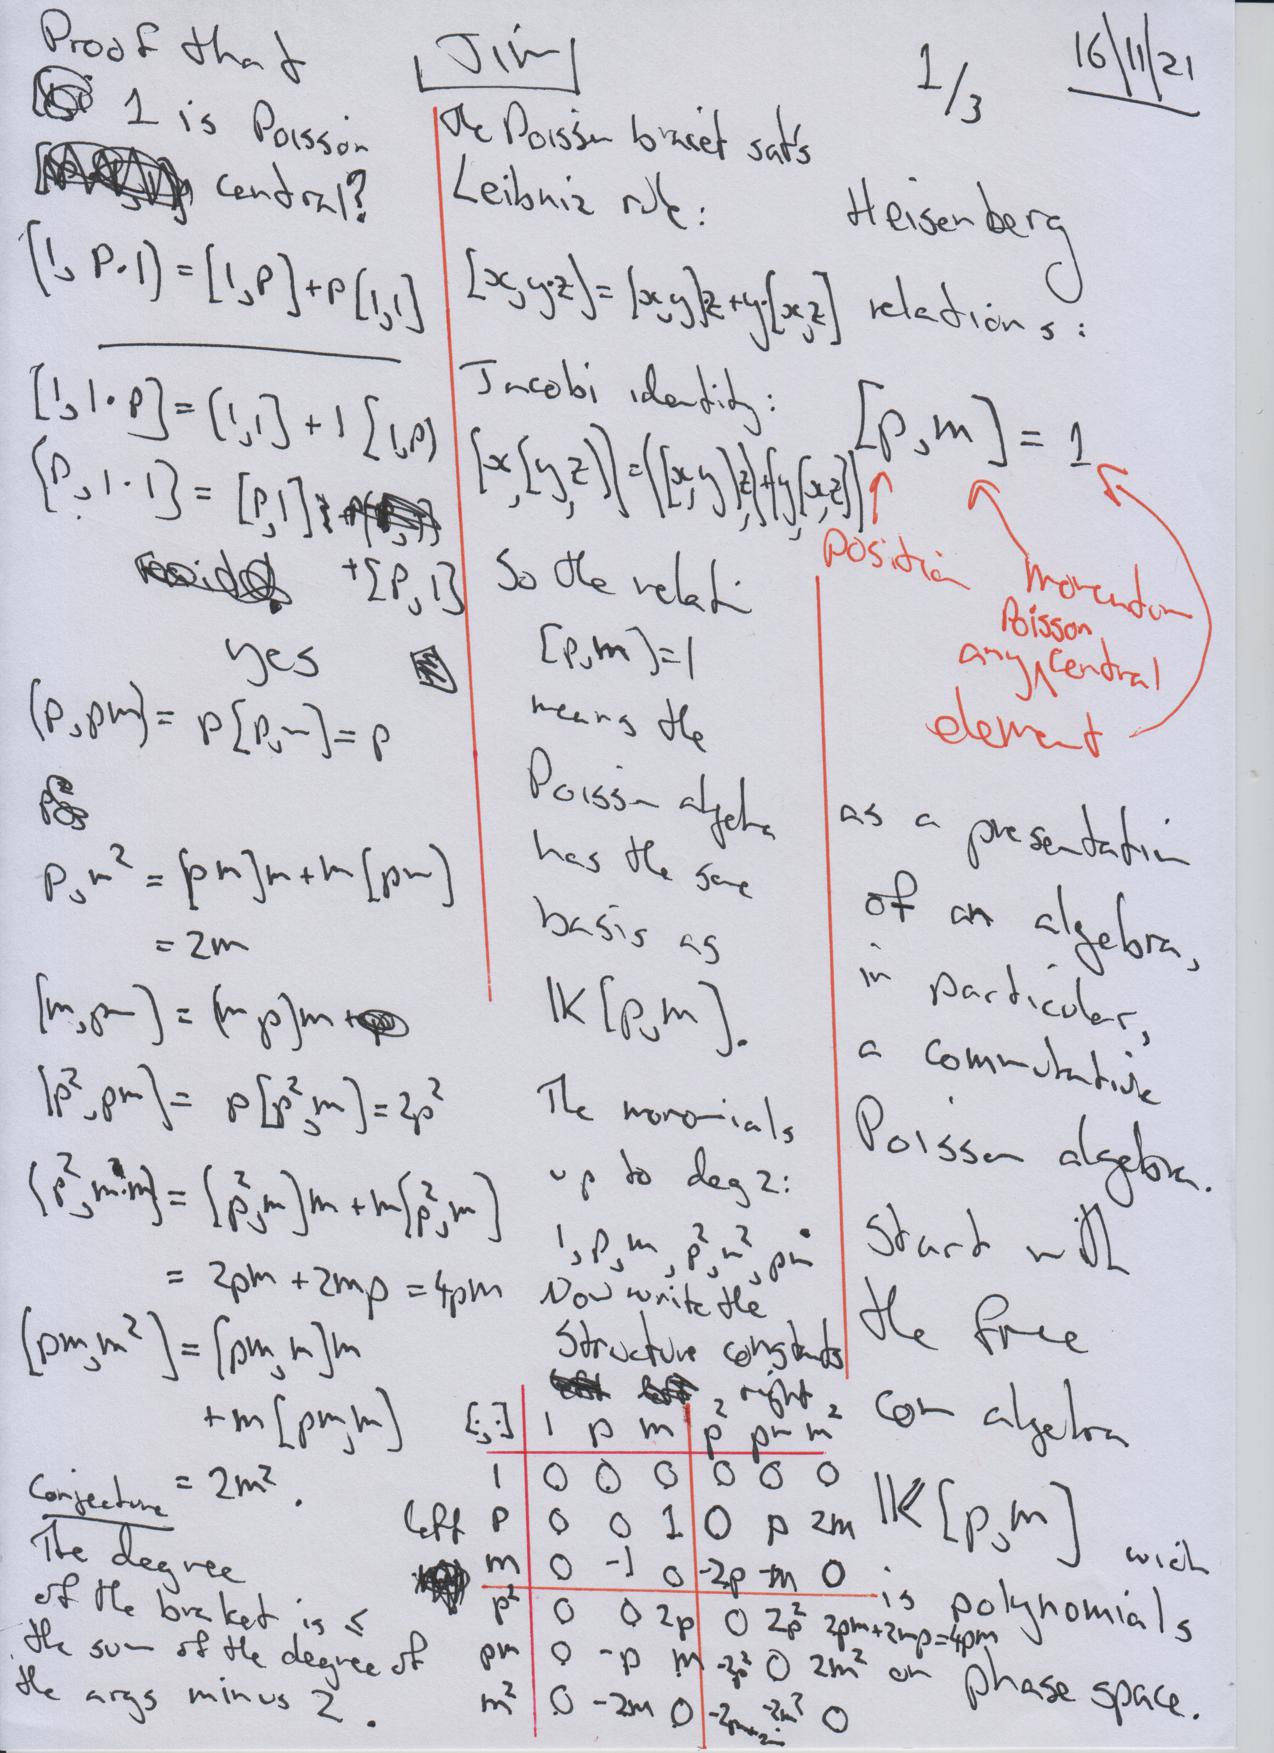 Proof that
1 is Poisson
central?
[1, p·1] = [1,p] + p[1,1]
[1, 1·p] = [1,1] + 1[1,p]
[p, 1·1] = [p,1]
+[p,1]
yes
[p, pm] = p[p,m] = p
p, m² = [pm]m + m[pm]
= 2m
[m, pm] = [m p]m
[p², pm] = p[p², m] = 2p²
[p², m·m] = [p², m]m + m[p², m]
= 2pm + 2mp = 4pm
[pm, m²] = [pm, m]m
+ m[pm, m]
= 2m².
Conjecture
The degree
of the braket is ≤
the sum of the degree of
the args minus 2.
Jim
1/3
16/11/21
the Poisson bracket sats
Leibniz rule:
[x, y·z] = [x,y]z + y·[x,z]
Jacobi identity:
[x,[y,z]] = [[x,y],z] + [y,[x,z]]
So the relati
[p,m] = 1
means the
Poisson algebra
has the same
basis as
IK[p,m].
The monomials
up to deg 2:
1, p, m, p², m², pm
Now write the
Structure constants
right
[;·] 1 p m p² pm m²
1 0 0 0 0 0 0
left p 0 0 1 0 p 2m
m 0 -1 0 -2p -m 0
p² 0 0 2p 0 2p² 2pm+2mp=4pm
pm 0 -p m -2p² 0 2m²
m² 0 -2m 0 -2m² 0
Heisenberg
relations:
[p,m] = 1
position
momentum
Poisson
any central
element
as a presentation
of an algebra,
in particular,
a commutative
Poisson algebra.
Start with
the free
com algebra
IK[p,m] wich
is polynomials
on phase space.